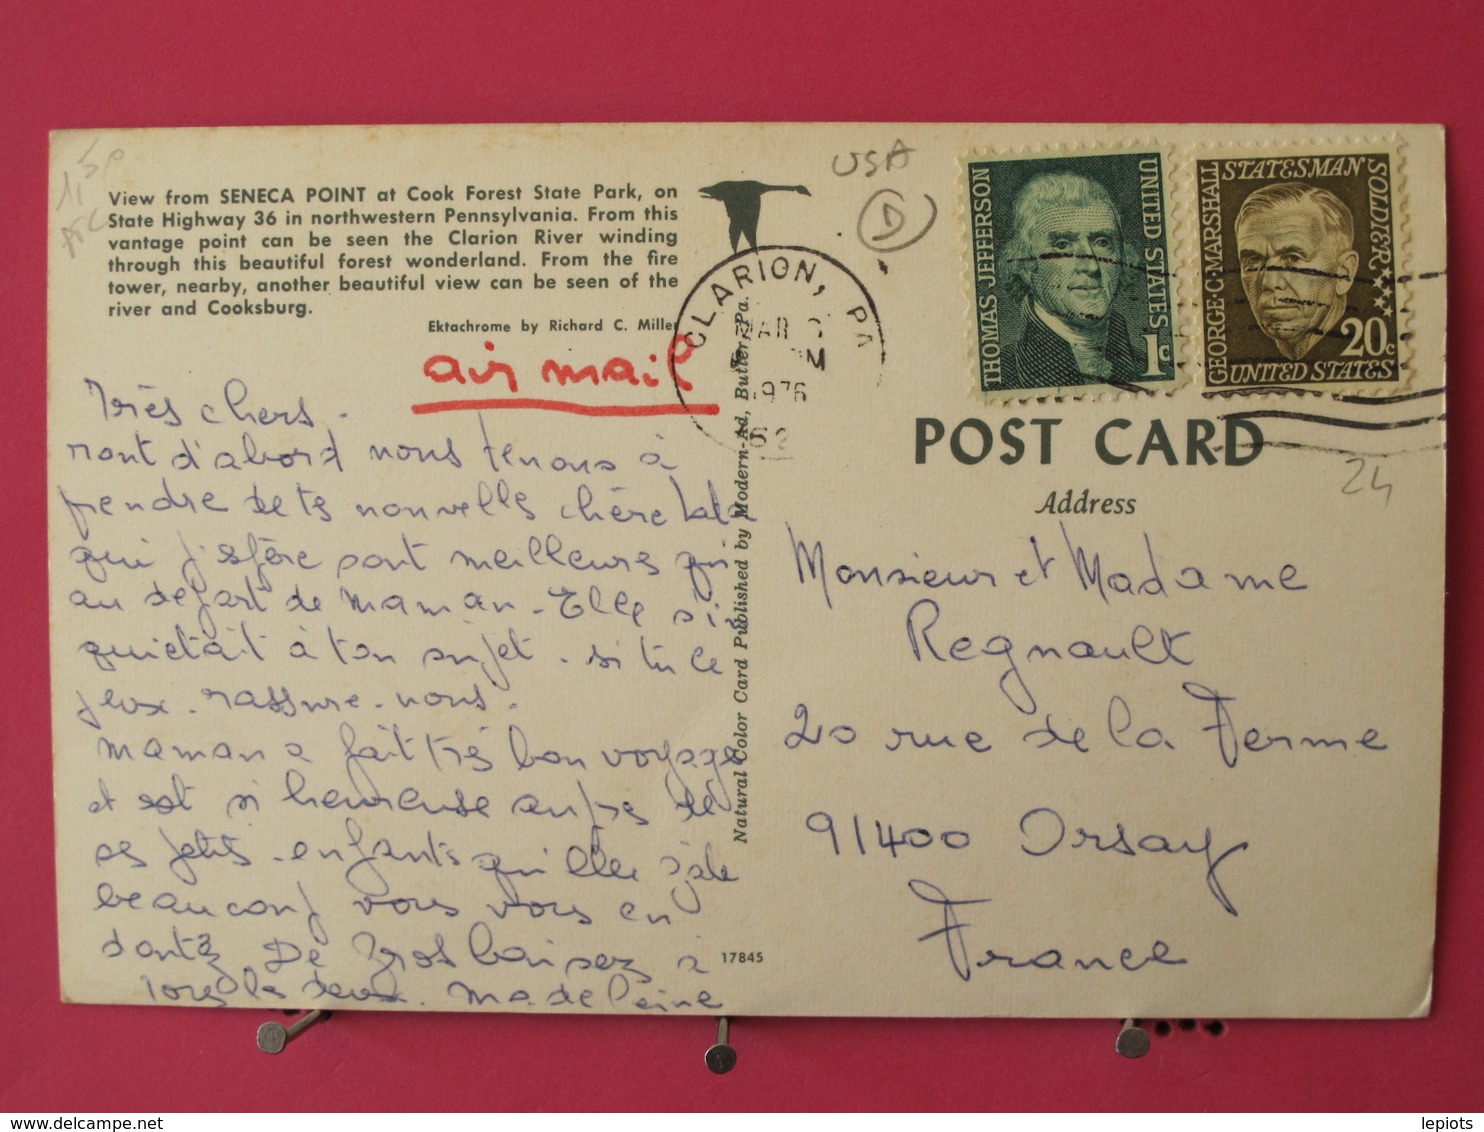 View from SENECA POINT at Cook Forest State Park, on
State Highway 36 in northwestern Pennsylvania. From this
vantage point can be seen the Clarion River winding
through this beautiful forest wonderland. From the fire
tower, nearby, another beautiful view can be seen of the
river and Cooksburg.
Ektachrome by Richard C. Miller
air mail
Très chers.
tout d'abord nous tenons à
prendre de tes nouvelles chère
qui j'espère sont meilleures qu'
au départ de maman. Elle s'in
quiétait à ton sujet. si tu le
peux. rassure-nous.
maman a fait très bon voyage
et est si heureuse auprès de
ses petits-enfants qu'elle gâte
beaucoup vous vous en
doutez. De gros baisers à
tous les deux. Madeleine
17845
Natural Color Card Published by Modern-Ad, Butler, Pa.
USA
D
CLARION, PA
MAR
PM
1976
THOMAS JEFFERSON
UNITED STATES
1c
GEORGE·C·MARSHALL
STATESMAN
SOLDIER
20c
UNITED STATES
POST CARD
24
Address
Monsieur et Madame
Regnault
20 rue de la Ferme
91400 Orsay
France
lepiots